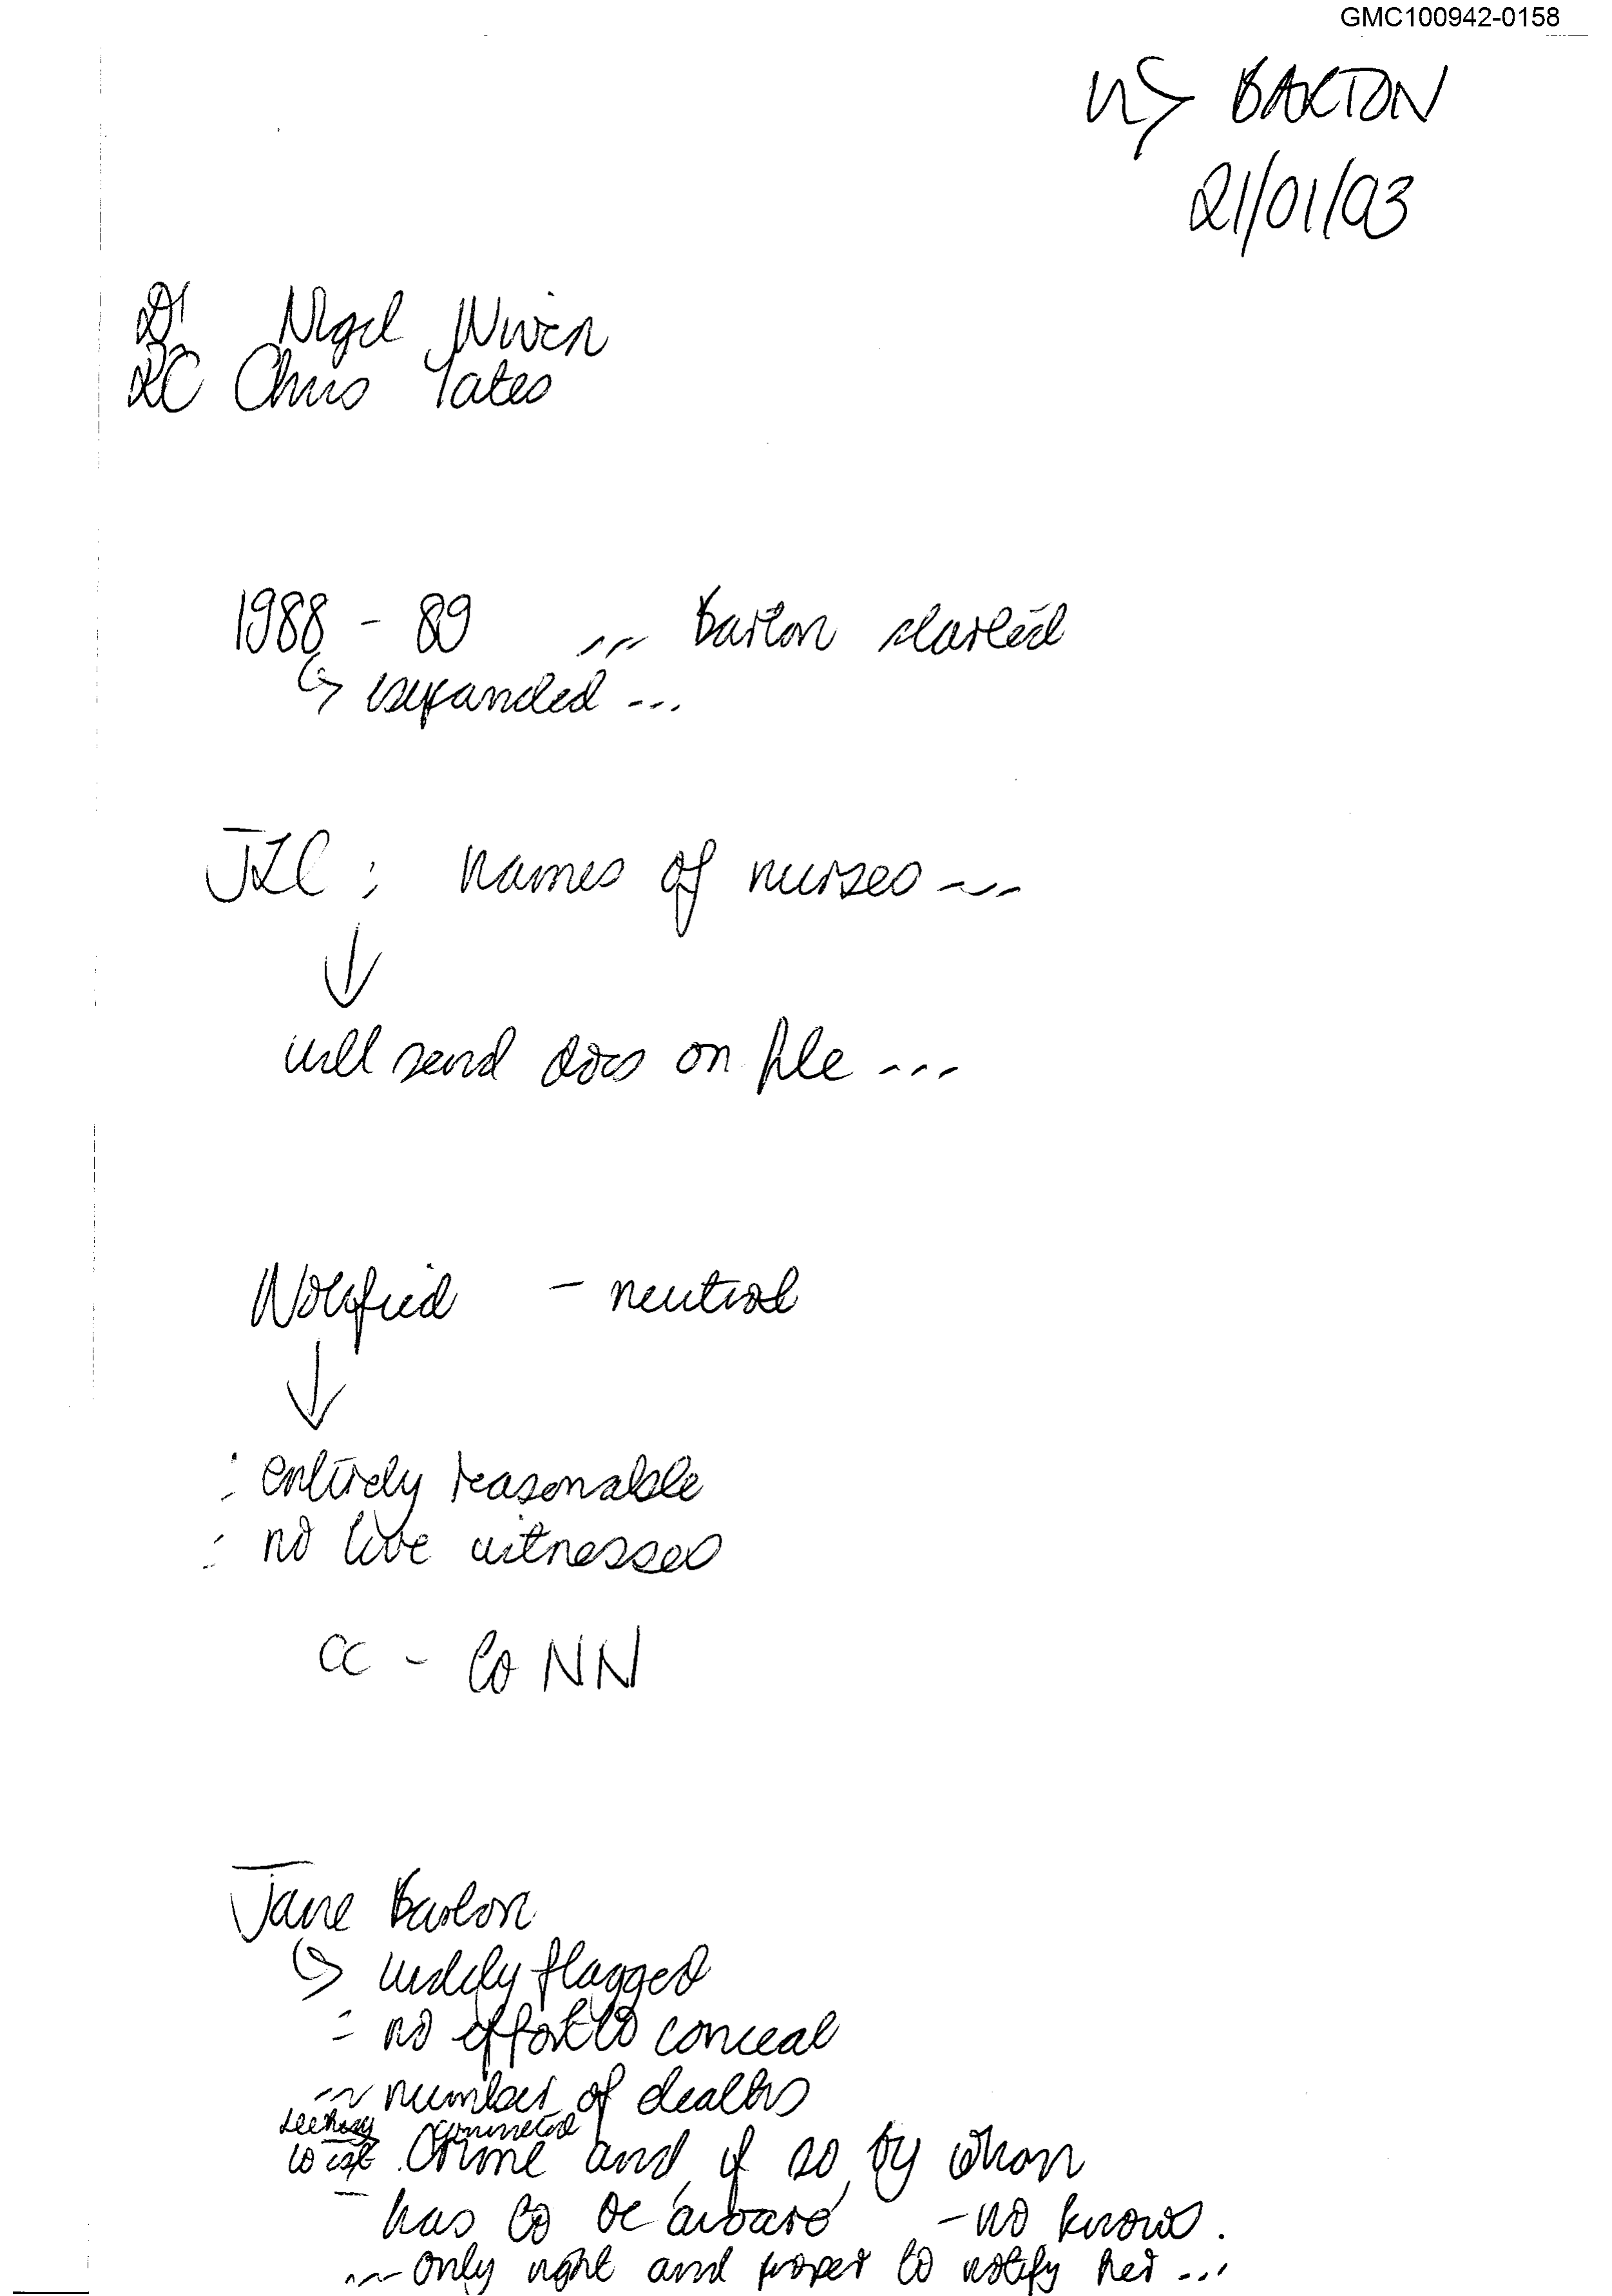 GMC100942-0158
BARTON
21/01/03
DI Nigel Niven
DC Chris Yates
1988 - 89 ... Barton started
↳ expanded ...
JZC : names of nurses ...
↓
will send docs on file ...
- neutral
↓
: entirely reasonable
: no live witnesses
cc - to NN
Jane Barton
↳ widely flagged
- no effort to conceal
... number of deaths
seeking committed
to est. crime and, if so, by whom
- has to be aware - no knows.
... only right and proper to notify her ...